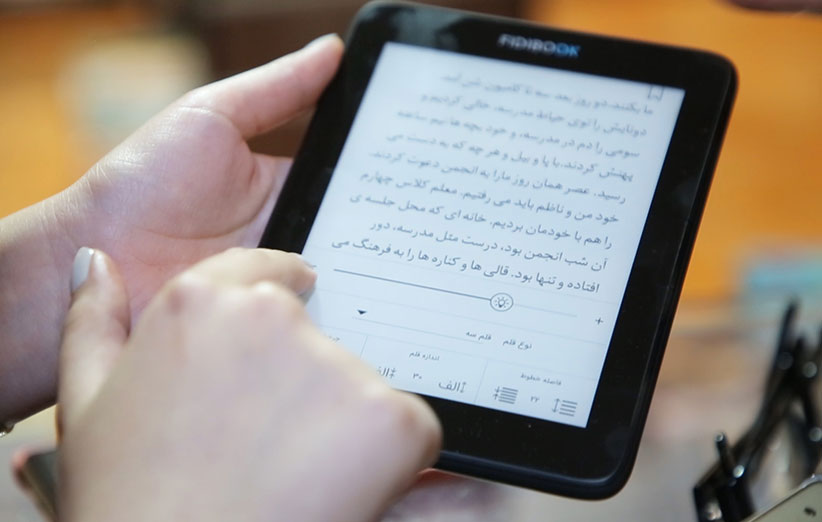 FIDIBOOK
ما بکنند. دو روز بعد سه تا کامیون شن آمد.
دوتایش را توی حیاط مدرسه، خالی کردیم و
سومی را دم در مدرسه، و خود بچه ها نیم ساعته
پهنش کردند. با پا و بیل و هر چه که به دست می
رسید. عصر همان روز ما را به انجمن دعوت کردند.
خود من و ناظم باید می رفتیم. معلم کلاس چهارم
را هم با خودمان بردیم. خانه ای که محل جلسه ی
آن شب انجمن بود، درست مثل مدرسه، دور
افتاده و تنها بود. قالی ها و کناره ها را به فرهنگ می
+
نوع قلم قلم سه
فاصله خطوط اندازه قلم
۲۷ الف ۳۰ الف